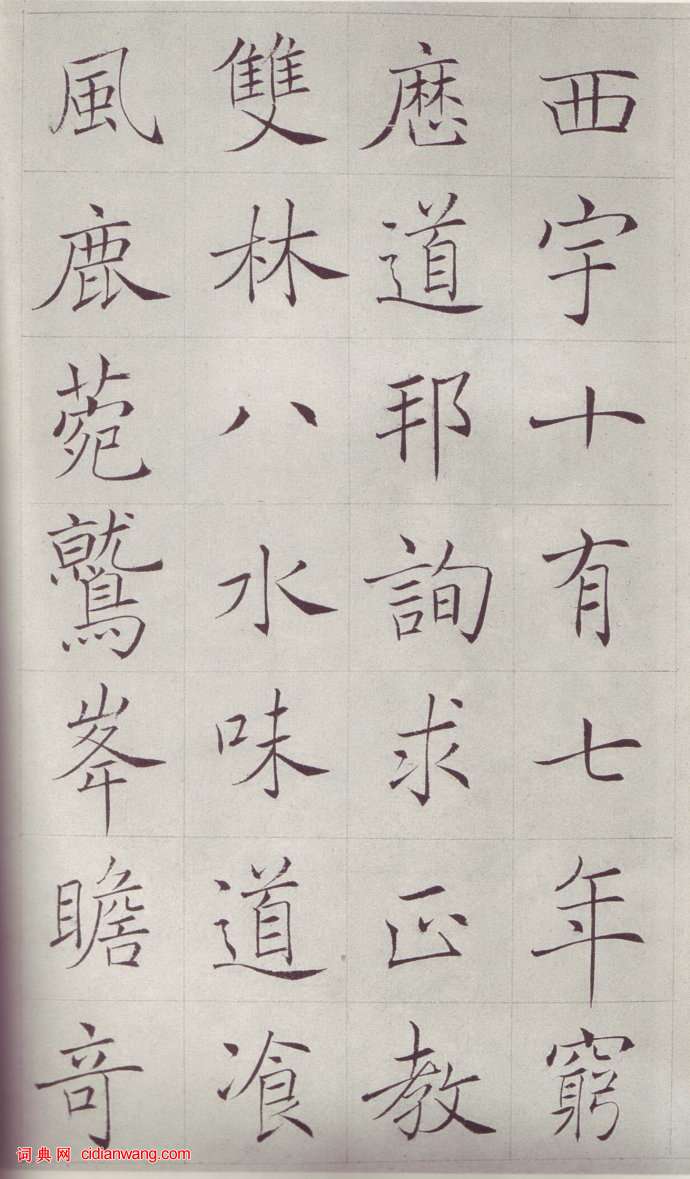 西宇十有七年窮
歷道邦詢求正教
雙林八水味道飡
風鹿菀鷲峯瞻奇
词典网 cidianwang.com